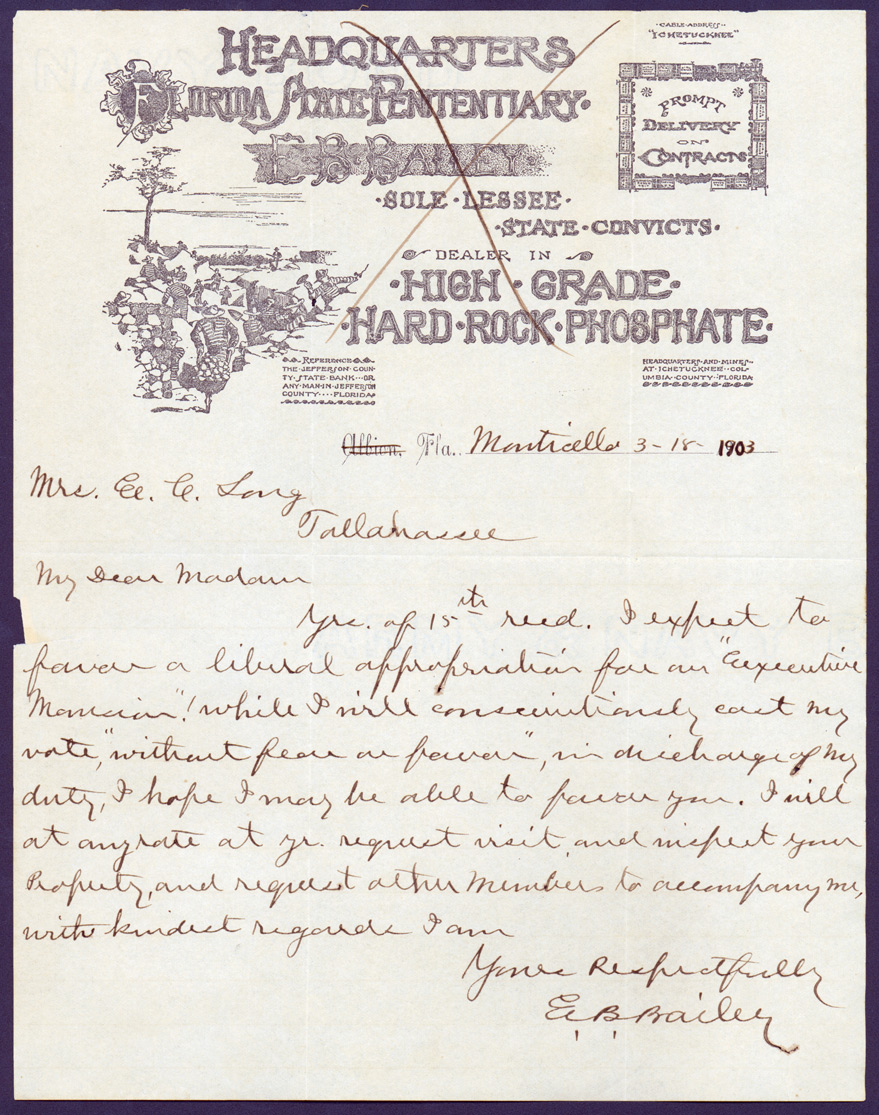 HEADQUARTERS
FLORIDA STATE PENITENTIARY.
E. B. BAILEY.
·SOLE·LESSEE·
·STATE·CONVICTS·
DEALER IN
·HIGH·GRADE·
·HARD·ROCK·PHOSPHATE·
·CABLE·ADDRESS··
"ICHETUCKNEE"
PROMPT
DELIVERY
ON
CONTRACTS
REFERENCE
THE·JEFFERSON·COUN-
TY·STATE·BANK··OR
ANY·MAN·IN·JEFFERSON
COUNTY····FLORIDA
HEADQUARTERS·AND·MINES·
AT·ICHETUCKNEE··COL-
UMBIA·COUNTY··FLORIDA
Albion, Fla., Monticello 3-18- 1903
Mrs. E. C. Long
Tallahassee
My Dear Madam
Yrs. of 15th recd. I expect to
favor a liberal appropriation for an "Executive
Mansion"! while I will conscientiously cast my
vote, "without fear or favor", in discharge of my
duty, I hope I may be able to favor you. I will
at anyrate at yr. request visit, and inspect your
Property, and request other Members to accompany me,
with kindest regards I am
Yours Respectfully
E. B. Bailey